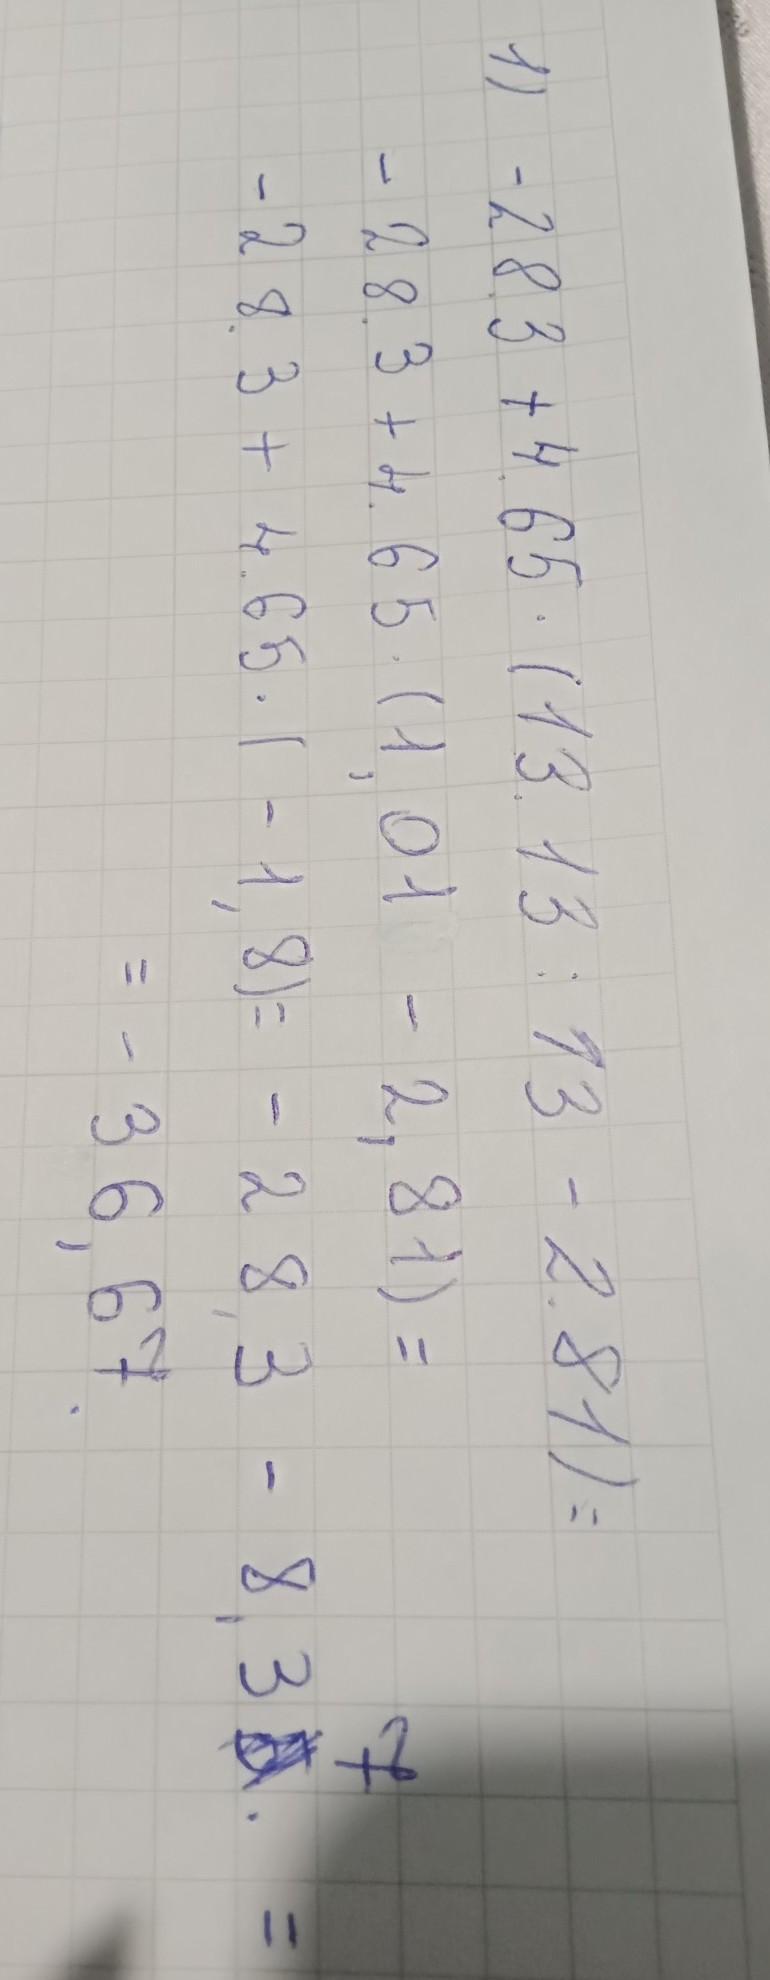 1) -28.3 + 4.65 · (13.13 : 13 - 2.81) =
- 28.3 + 4.65 · (1,01 - 2,81) =
- 28.3 + 4.65 · (-1,8) = - 28,3 - 8,37. =
= - 36,67.